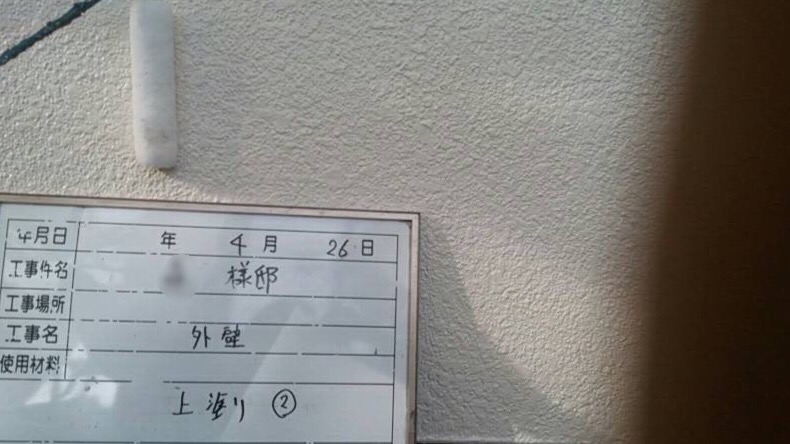 年月日 年 4月 26日
工事件名 様邸
工事場所
工事名 外壁
使用材料
上塗り ②